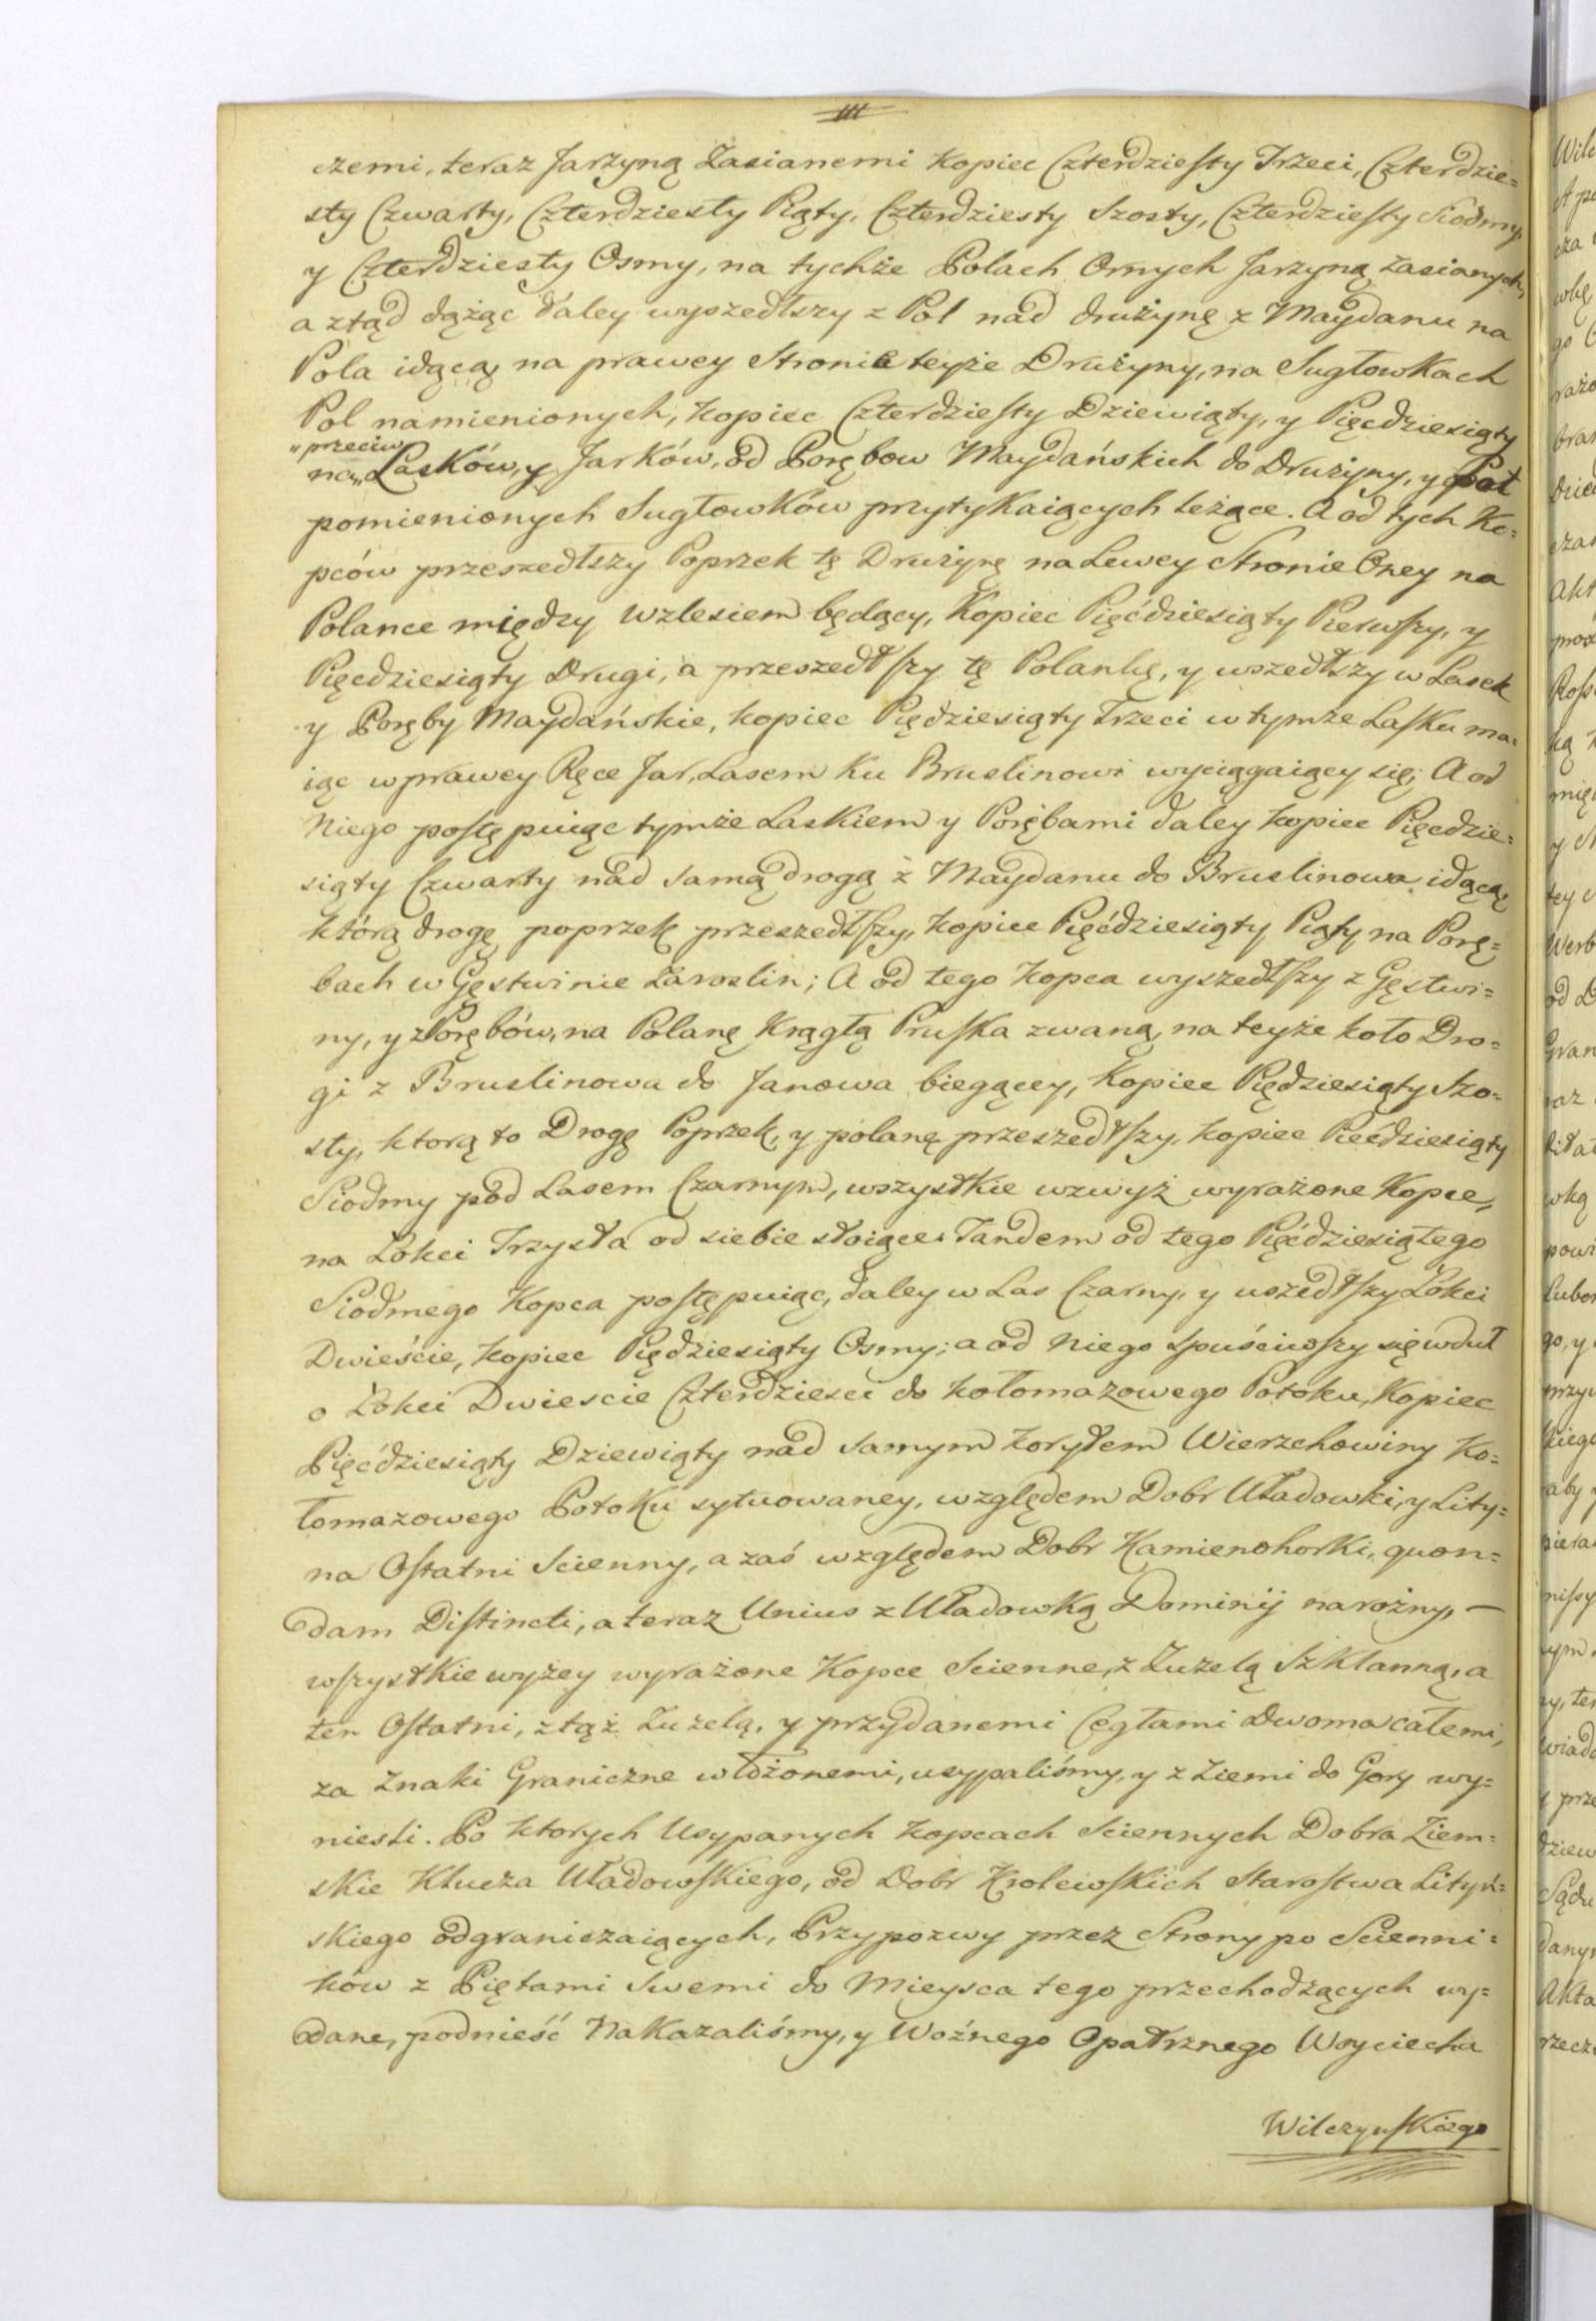 czemi, teraz Jarzyną Zasianemi Kopiec Czterdziesty Trzeci, Czterdzie=
sty Czwarty, Czterdziesty Piąty, Czterdziesty Szosty, Czterdziesty Siodmy,
y Czterdziesty Osmy, na tychże Polach Ornych Jarzyną zasianych,
a ztąd dążąc daley wyszedłszy z Pol nad drużynę z Maydanu na
Pola idącą, na prawey Stronie teyże Drużyny, na Sugłowkach
Pol namienionych, Kopiec Czterdziesty Dziewiąty, y Pięćdziesiąty
"przeciw
na,, Lasków, y Jarków, od Porębow Maydańskich do Drużyny, y Pol
pomienionych Sugłowków przytykaiących leżące. A od tych Ko=
pców przeszedłszy Poprzek tę Drużynę na Lewey Stronie Oney na
Polance między wzlesiem będący, Kopiec Pięćdziesiąty Pierwszy, y
Pięcdziesiąty Drugi, a przeszedłszy tę Polankę, y wszedłszy w Lasek
y Poręby Maydańskie, kopiec Piędziesiąty Trzeci w tymże Lasku ma=
iąc w prawey Ręce Jar, Lasem Ku Bruslinowi wyciągaiący się; A od
Niego postępuiąc tymże Laskiem y Porębami daley kopiec Pięcdzie=
siąty Czwarty nad samą drogą z Maydanu do Bruslinowa idącą
którą drogę poprzek przeszedłszy, kopiec Pięćdziesiąty Piąty na Porę=
bach w Gęstwinie Zaroslin; A od tego Kopca wyszedłszy z Gęstwi=
ny, y z Porębów, na Polanę Krągłą Pruska zwaną, na teyże koło Dro=
gi z Bruslinowa do Janowa biegącey, Kopiec Piędziesiąty Szo=
sty, ktorą to Drogę Poprzek, y polanę przeszedłszy, kopiec Pieédziesiąty
Siodmy pod Lasem Czarnym, wszystkie wzwyż wyrażone Kopce,
na Łokci Trzysta od siebie stoiące. Tandem od tego Pięćdziesiątego
Siodmego Kopca postępuiąc, daley w Las Czarny, y uszedłszy Łokci
Dwieście, kopiec Piędziesiąty Osmy; a od Niego spuściwszy się w duł
o Łokci Dwiescie Czterdziesci do kołomazowego Potoku, Kopiec
Pięćdziesiąty Dziewiąty nad samym korytem Wierzchowiny Ko=
łomazowego Potoku sytuowaney, względem Dobr Uładowki, y Lity=
na Ostatni Scienny, a zaś względem Dobr Kamienohorki, quon=
dam Distincti, a teraz Unius z Uładowką Dominij narożny, —
wszystkie wyżey wyrażone Kopce Scienne, z Zuzelą Szklanną, a
ten Ostatni, z tąż Zużelą, y przydanemi Cegłami dwoma całemi,
za Znaki Graniczne włożonemi, usypaliśmy, y z Ziemi do Gory wy=
niesli. Po ktorych Usypanych kopcach Sciennych Dobra Ziem=
skie Klucza Uładowskiego, od Dobr Krolewskich Starostwa Lityń=
skiego odgraniczaiących, Przypozwy przez Strony po Scienni=
ków z Piętami Swemi do Mieysca tego przechodzących wy=
dane, podnieść Nakazaliśmy, y Woźnego Opatrznego Woyciecha
Wilczynskiego